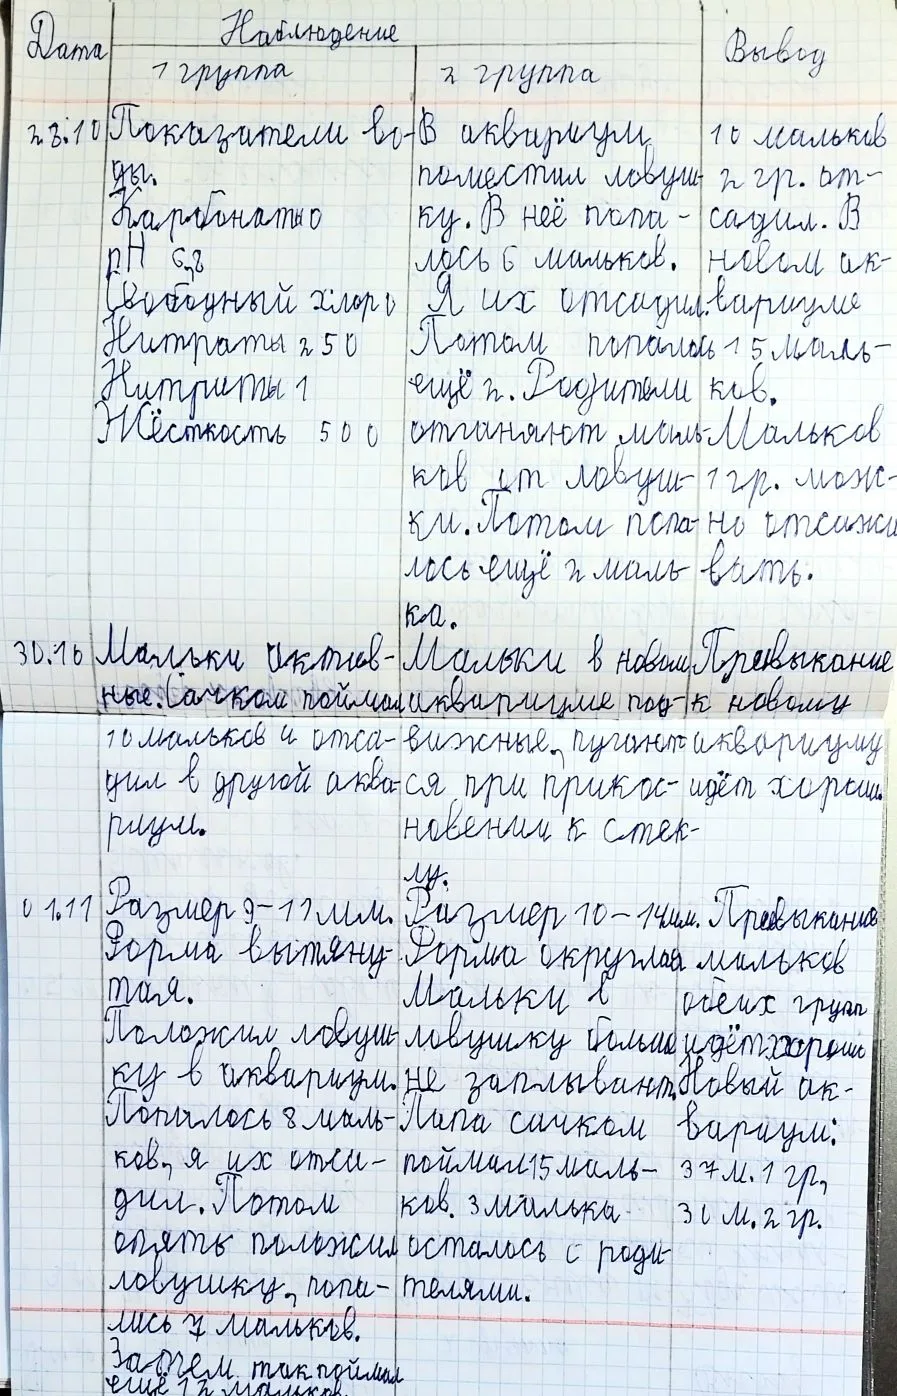 Дата
Наблюдение
1 группа
2 группа
Вывод
28.10
Показатели во-
ды.
Карбонаты 0
pH 6,8
Свободный хлор 0
Нитраты 250
Нитриты 1
Жёсткость 500
В аквариум
поместил ловуш-
ку. В неё попа-
лось 6 мальков.
Я их отсадил.
Потом попалось
ещё 2. Родители
отганяют маль-
ков от ловуш-
ки. Потом попа-
лось ещё 2 маль-
ка.
10 мальков
2 гр. от-
садил. В
новом ак-
вариуме
15 маль-
ков.
Мальков
1 гр. мож-
но отсажи
вать.
30.10
Мальки актив-
ные. Сачком поймал
10 мальков и отса-
дил в другой аква-
риум.
Мальки в новом
аквариуме под-
вижные, пугают-
ся при прикос-
новении к стек-
лу.
Привыкание
к новому
аквариуму
идёт хорошо.
01.11
Размер 9-11 мм.
Форма вытяну-
тая.
Положил ловуш-
ку в аквариум.
Попалось 8 маль-
ков, я их отса-
дил. Потом
опять положил
ловушку, попа-
лись 7 мальков.
Затем так поймал
ещё 12 мальков.
Размер 10-14 мм.
Форма округлая
Мальки в
ловушку больше
не заплывают.
Папа сачком
поймал 15 маль-
ков. 3 малька
осталось с роди-
телями.
Привыкание
мальков
обеих групп
идёт хорошо
Новый ак-
вариум:
37 м. 1 гр,
30 м. 2 гр.